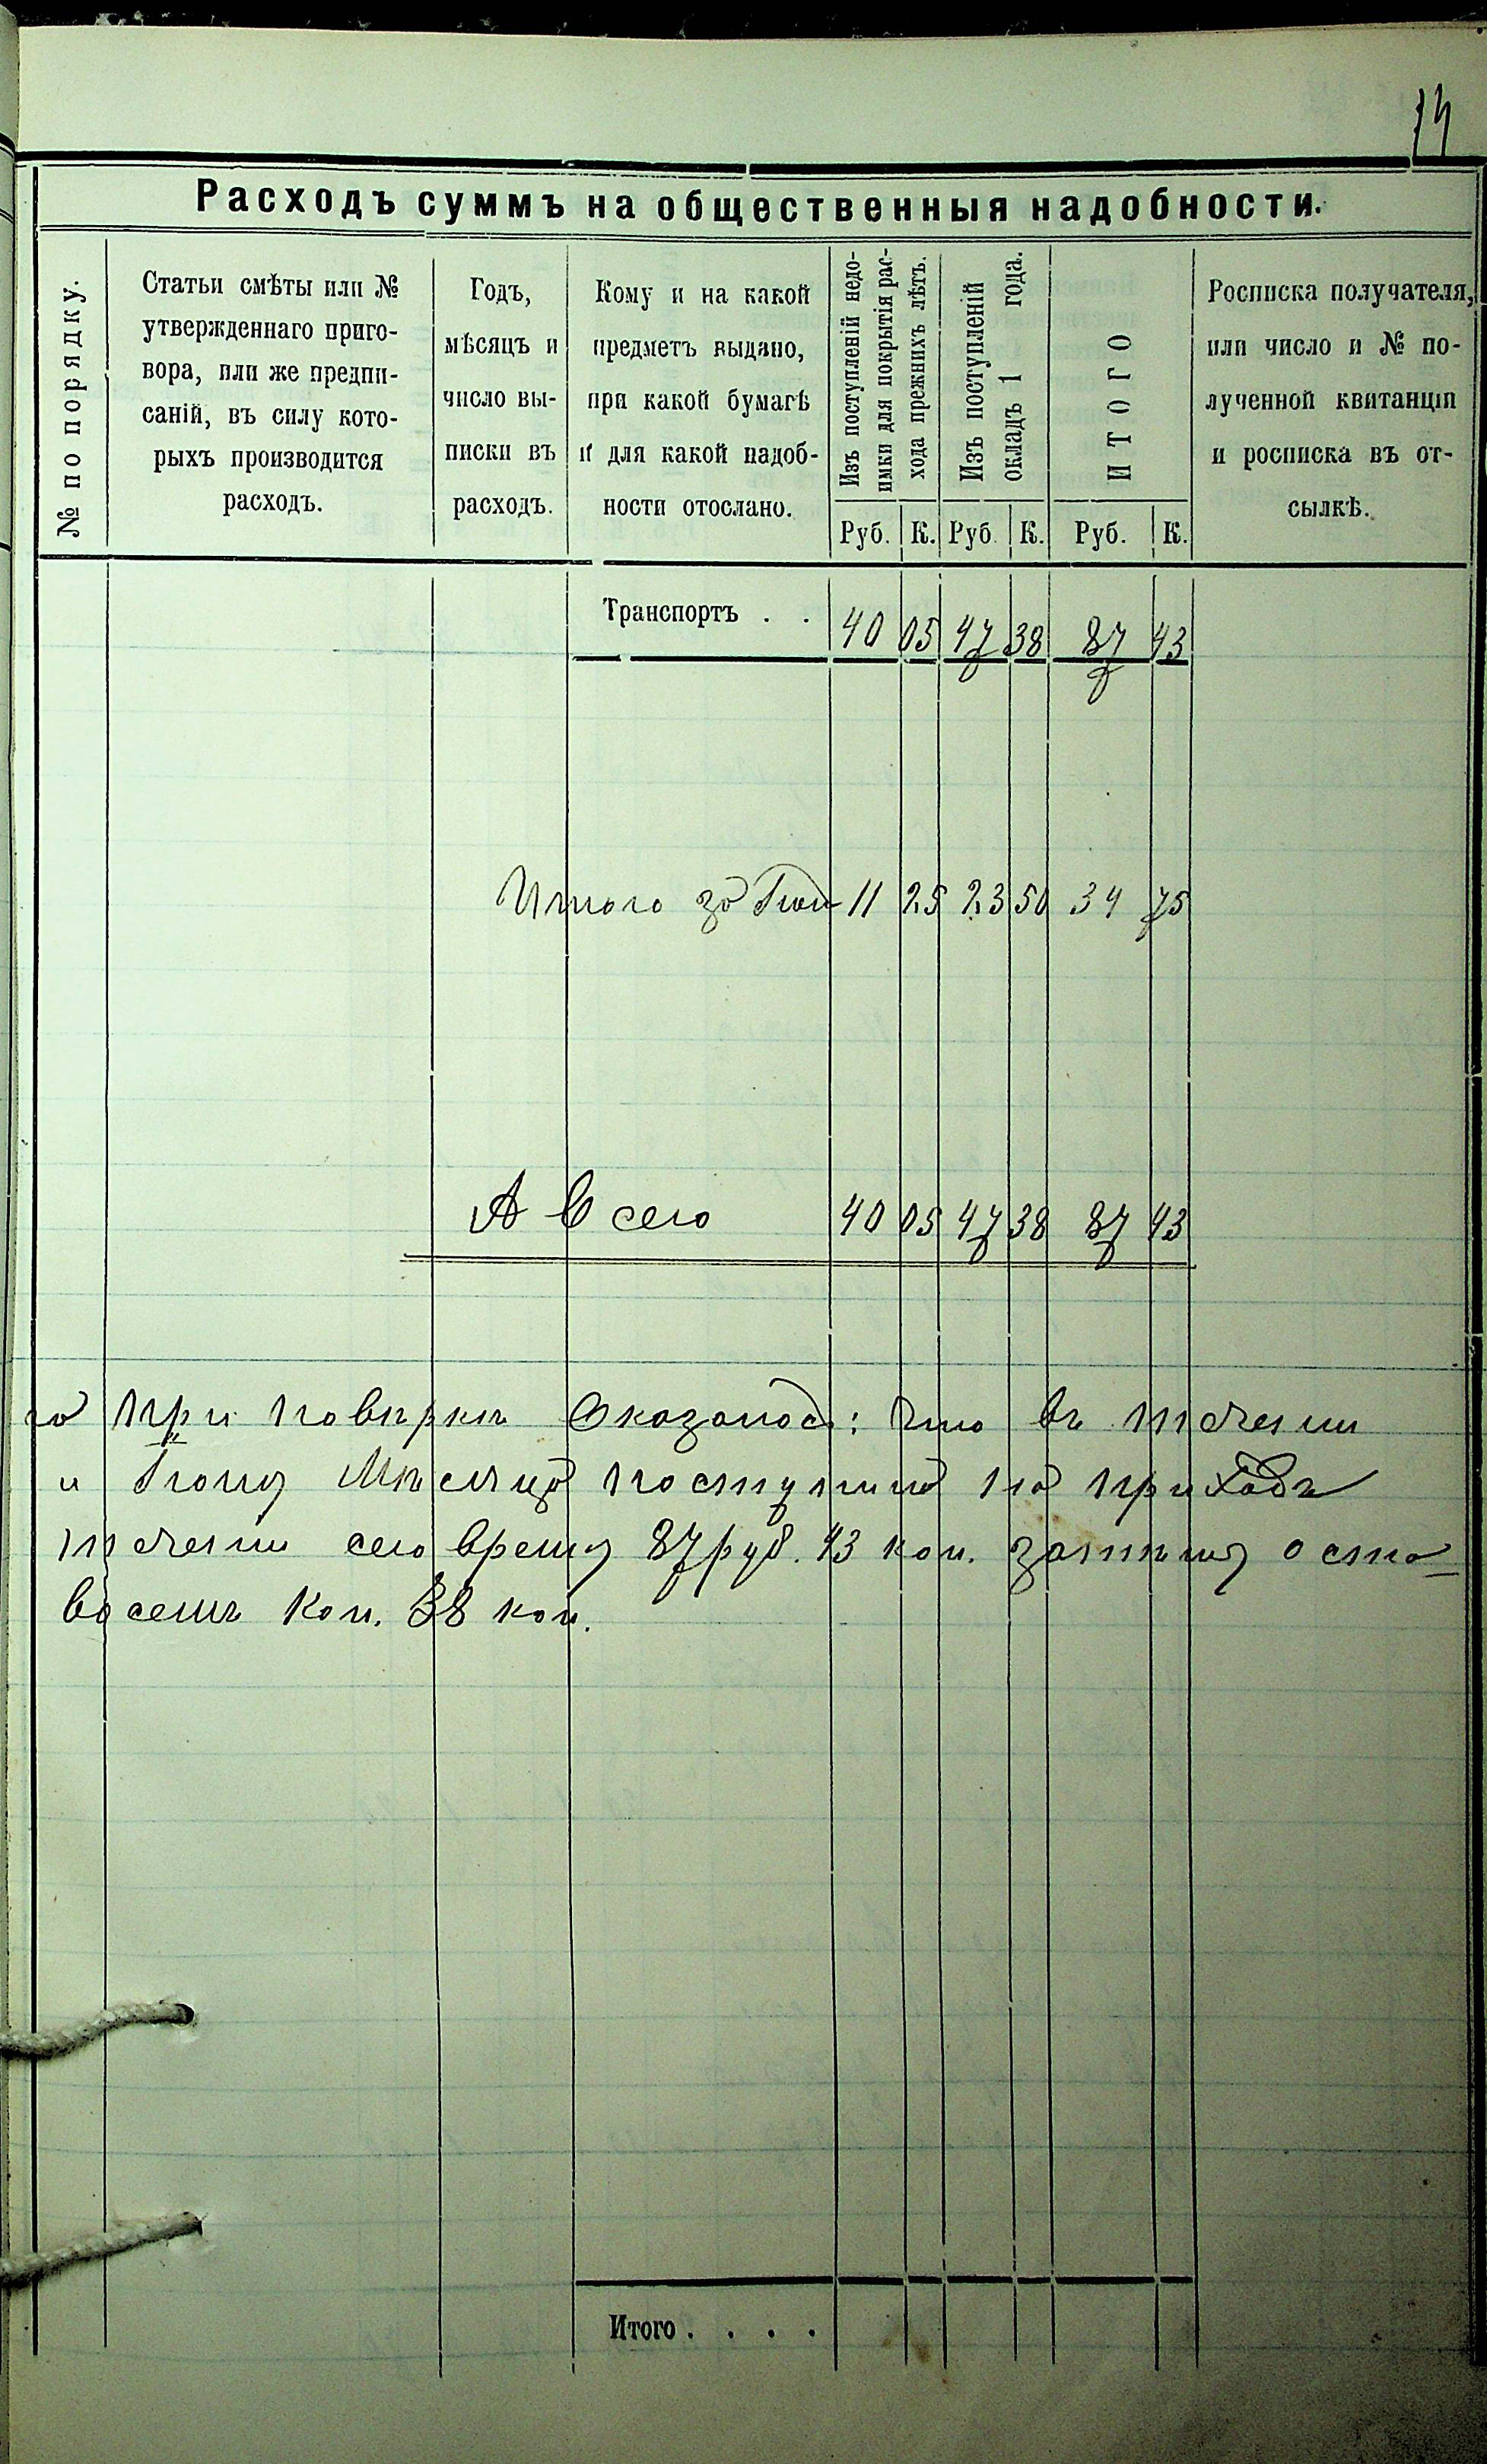 14
Расходъ суммъ на общественныя надобности.
№ по порядку.
Статьи смѣты или №
утвержденнаго приго-
вора, или же предпи-
саній, въ силу кото-
рыхъ производится
расходъ.
Годъ,
мѣсяцъ и
число вы-
писки въ
расходъ.
Кому и на какой
предметъ выдано,
при какой бумагѣ
и для какой надоб-
ности отослано.
Изъ поступленій недо-
имки для покрытія рас-
хода прежнихъ лѣтъ.
Изъ поступленій
окладъ 1 года.
ИТОГО
Росписка получателя,
или число и № по-
лученной квитанціи
и росписка въ от-
сылкѣ.
Руб. К. Руб. К. Руб. К.
Транспортъ . . 40 05 47 38 87 43
Итого за 11 25 23 50 34 75
А Всего 40 05 47 38 87 43
го при поверкъ Оказалось: Что въ течении
и Мѣсяца поступило на приходъ
течении сего время 87 руб. 43 коп. затѣмъ оста-
восемъ коп. 38 коп.
Итого . . . .